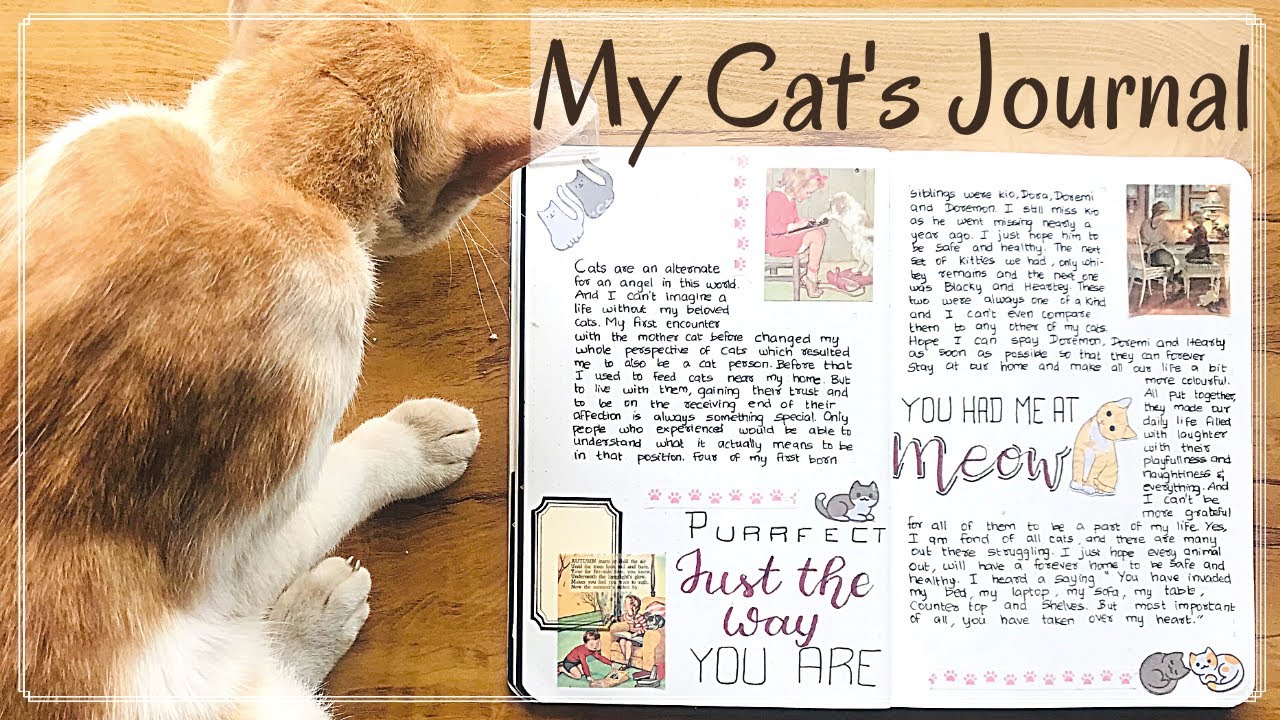 My Cat's Journal
Cats are an alternate
for an angel in this world.
And I can't imagine a
life without my beloved
cats. My first encounter
with the mother cat before changed my
whole perspective of cats which resulted
me to also be a cat person. Before that
I used to feed cats near my home. But
to live with them, gaining their trust and
to be on the receiving end of their
affection is always something special. Only
people who experienced would be able to
understand what it actually means to be
in that position. Four of my first born
AUTUMN
PURRFECT
Just the
way
YOU ARE
siblings were kio, Dora, Doremi
and Doremon. I still miss kio
as he went missing nearly a
year ago. I just hope him to
be safe and healthy. The next
set of kitties we had, only whi-
tey remains and the next one
was Blacky and Heartey. These
two were always one of a kind
and I can't even compare
them to any other of my cats.
Hope I can spay Doremon, Doremi and Hearty
as soon as possible so that they can forever
stay at our home and make all our life a bit
more colourful.
All put together,
they made our
daily life filled
with laughter
with their
playfullness and
naughtiness &
everything. And
I can't be
more grateful
YOU HAD ME AT
Meow
for all of them to be a part of my life. Yes,
I am fond of all cats, and there are many
out there struggling. I just hope every animal
out, will have a forever home to be safe and
healthy. I heard a saying "You have invaded
my bed, my laptop, my sofa, my table,
counter top and shelves. But most important
of all, you have taken over my heart."